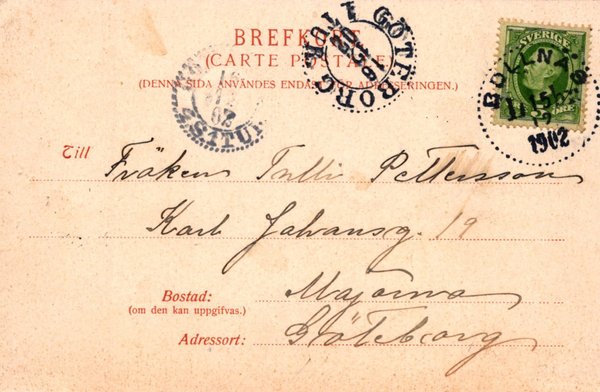 BREFKORT
(CARTE POSTALE)
(DENNA SIDA ANVÄNDES ENDAST FÖR ADRESSERINGEN.)
GÖTEBORG
SVERIGE
BOLLNÄS
15
1902
Till Fröken Tulli Pettersson
Karl Johansg. 19
Bostad: Majorna
(om den kan uppgifvas.)
Adressort: Göteborg